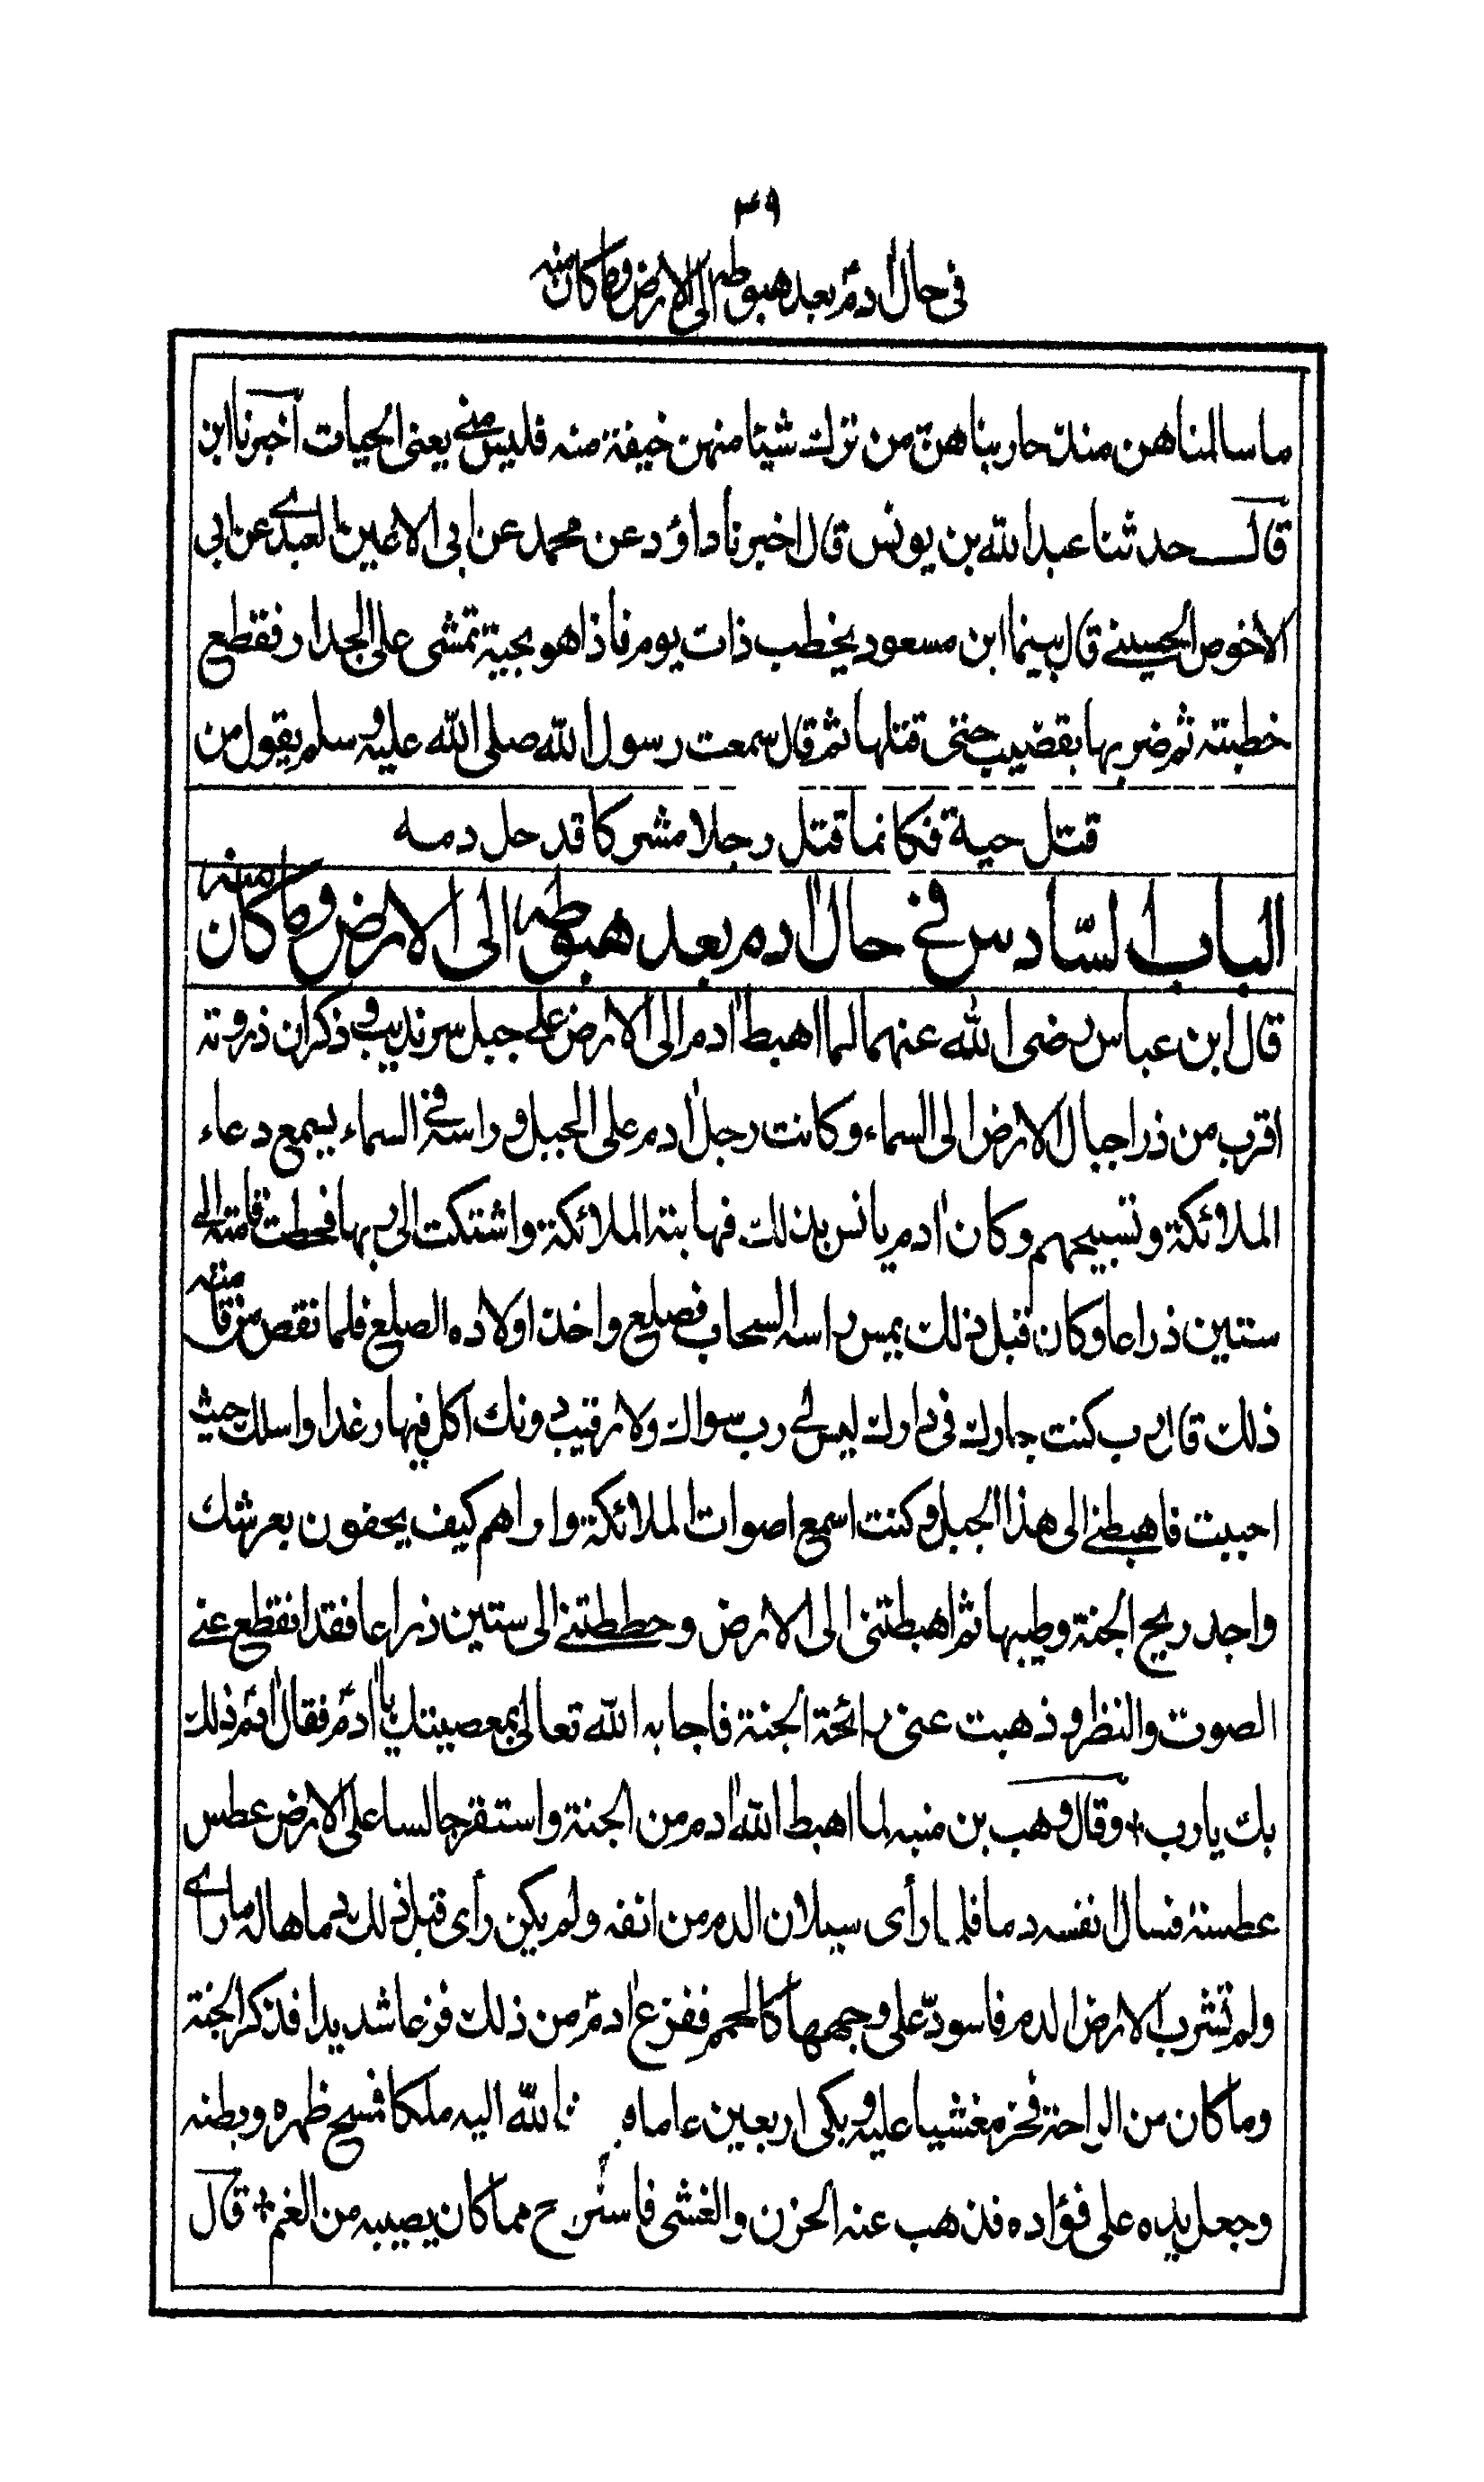 ٣٩
فى حال اٰدم بعد هبوطه الى الارض وما كان منه
ما سالمناهن منذ حاربناهن من ترك شيئا منهن خيفة منه فليس منى يعنى الحيات اخبرنا ابن
قال حدثنا عبدالله بن يونس قال اخبرنا داؤد عن محمد عن ابى الاعين العبدى عن ابى
الاخوص الحسينى قال بينما ابن مسعود يخطب ذات يوم فاذا هو بحية تمشى على الجدار فقطع
خطبته ثم ضربها بقضيب حتى قتلها ثم قال سمعت رسول الله صلى الله عليه وسلم يقول من
قتل حية فكانما قتل رجلا مشركا قد حل دمه
الباب السّادس فى حال اٰدم بعد هبوطه الى الارض وما كان منه
قال ابن عباس رضى الله عنهما لما اهبط اٰدم الى الارض على جبل سرنديب و ذكران ذروته
اقرب من ذرا جبال الارض الى السماء وكانت رجل اٰدم على الجبل و راسه فى السماء يسمع دعاء
الملائكة وتسبيحهم وكان اٰدم يانس بذلك فهابته الملائكة واشتكت الى ربها فحطت قامته الى
ستين ذراعا وكان قبل ذلك يمس راسه السحاب فصلع واخذ اولاده الصلع فلما نقص من قامته
ذلك قال رب كنت جارك فى دارك ليس لى رب سواك ولا رقيب دونك اٰكل فيها رغدا واسلك حيث
احببت فاهبطنى الى هذا الجبل وكنت اسمع اصوات الملائكة واراهم كيف يحفون بعرشك
واجد ريح الجنة وطيبها ثم اهبطتنى الى الارض وحططتنى الى ستين ذراعا فقد انقطع عنى
الصوت والنظر و ذهبت عنى رائحة الجنة فاجابه الله تعالى بمعصيتك يا اٰدم فقال اٰدم ذلك
بك يارب + وقال وهب بن منبه لما اهبط الله اٰدم من الجنة واستقر جالسا على الارض عطس
عطسة فسال نفسه دما فلما رأى سيلان الدم من انفه ولم يكن رأى قبل ذلك دما هاله ما راى
ولم تشرب الارض الدم فاسودّ على وجهها كالحمم ففزع اٰدم من ذلك فزعا شديدا فذكر الجنة
وما كان من الراحة فخر مغشيا عليه وبكى اربعين عاما الله اليه ملكا فمسح ظهره وبطنه
وجعل يده على فؤاده فذهب عنه الحزن والغشى فاستراح مما كان يصيبه من الغم + قال